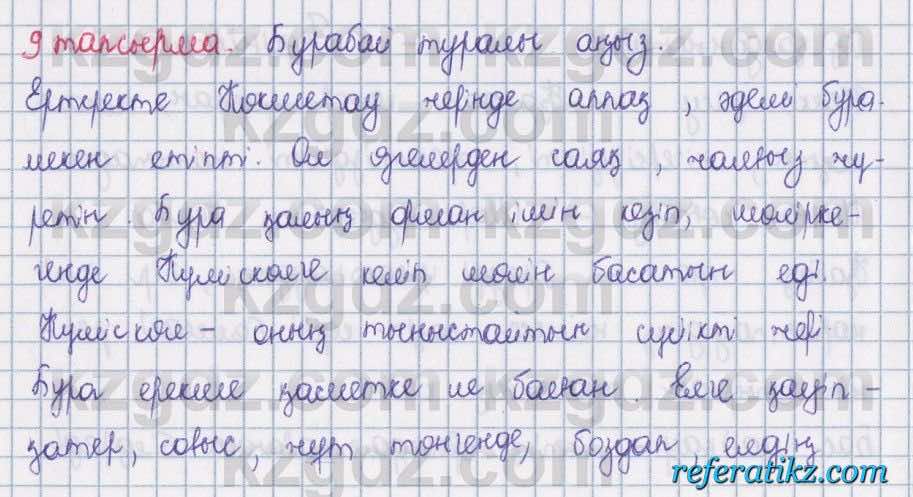 9 тапсырма. Бурабай туралы аңыз.
Ертеректе Көкшетау жерінде аппақ, әдемі бура
мекен етіпті. Ол өзгелерден саяқ, жалғыз жү-
ретін. Бура қалың орман ішін кезіп, шөлірке-
генде Күмісколге келіп шөлін басатын еді.
Күміскөл - оның тыныстайтын сүйікті жері.
Бура ерекше қасиетке ие болған. Елге қауіп -
қатер, соғыс, жұт төнгенде, боздап, елдің
kzgdz.com
referatikz.com